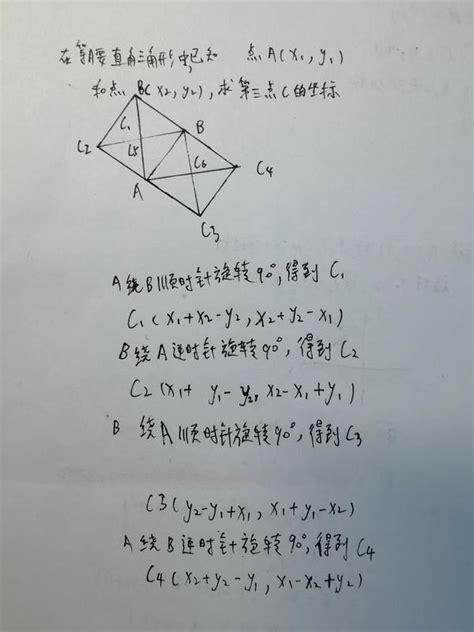 在等腰直角三角形中,已知 点A(x₁,y₁)
和点B(x₂,y₂),求第三点C的坐标
C₁
B
C₂
C5
C6
C4
A
C3
A绕B顺时针旋转90°,得到C₁
C₁(x₁+x₂-y₂, x₂+y₂-x₁)
B绕A逆时针旋转90°,得到C₂
C₂(x₁+ y₁-y₂, x₂-x₁+y₁)
B 绕A顺时针旋转90°,得到C3
C3(y₂-y₁+x₁, x₁+y₁-x₂)
A绕B逆时针旋转90°,得到C4
C4(x₂+y₂-y₁, x₁-x₂+y₂)